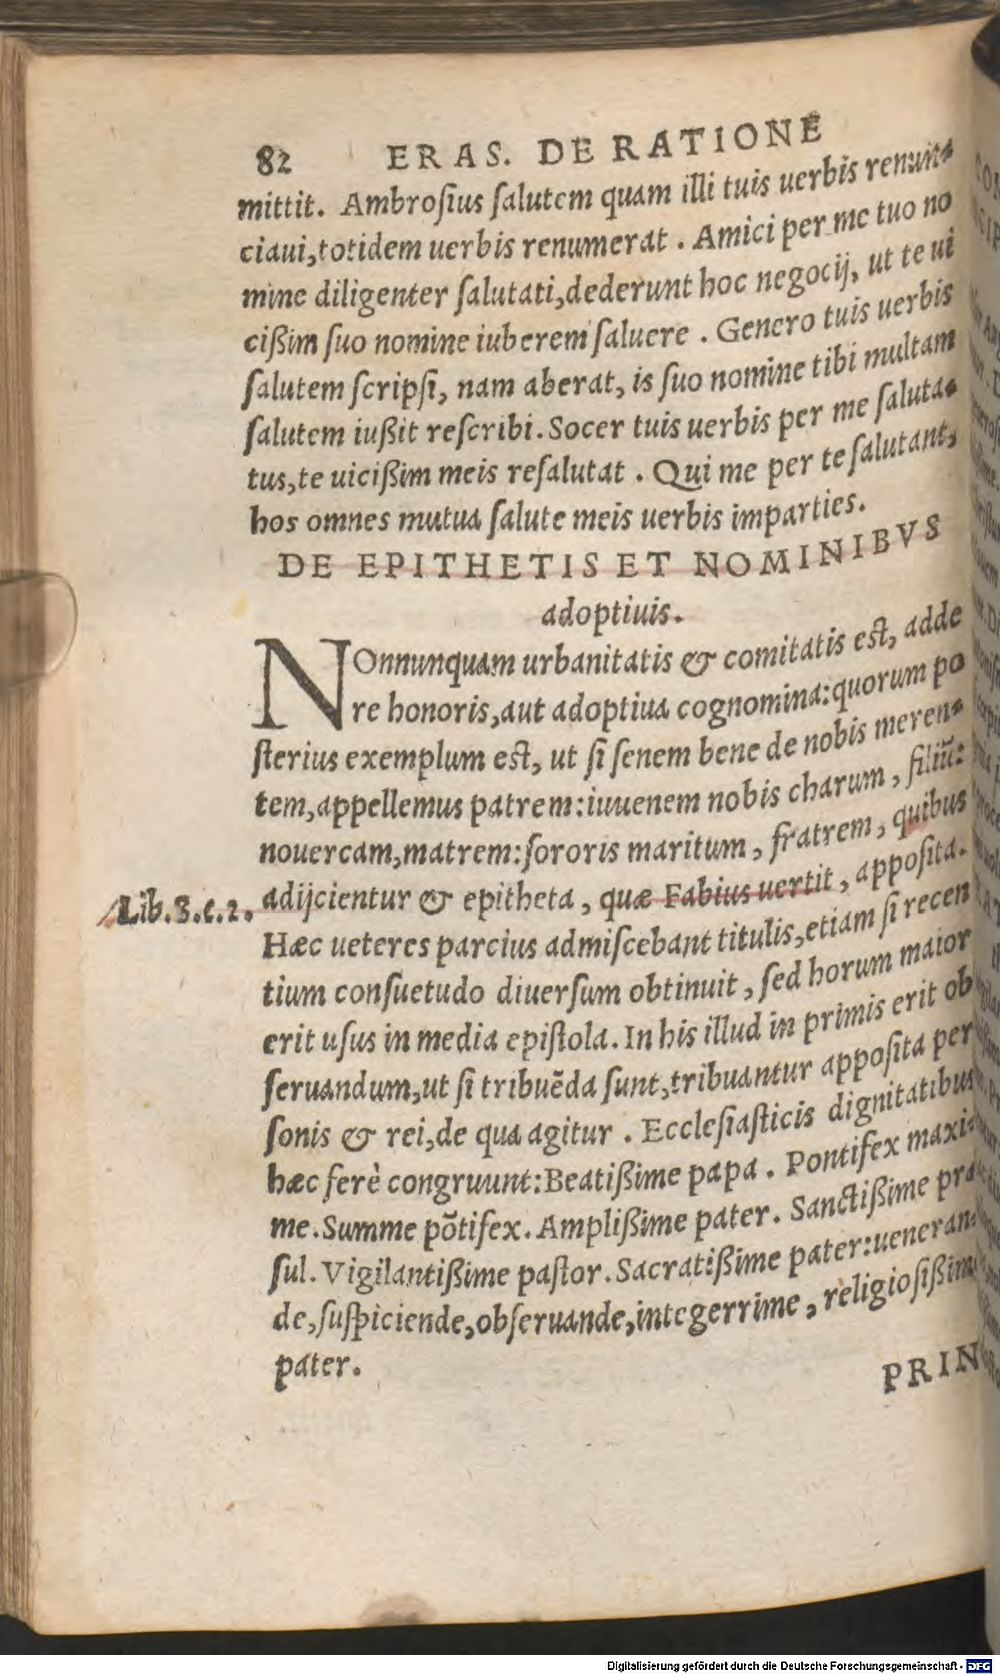 82 ERAS. DE RATIONE
mittit. Ambroſius ſalutem quam illi tuis uerbis renun⸗
ciaui, totidem uerbis renumerat. Amici per me tuo no
mine diligenter ſalutati, dederunt hoc negocij, ut te ui
cißim ſuo nomine iuberem ſaluere. Genero tuis uerbis
ſalutem ſcripſi, nam aberat, is ſuo nomine tibi multam
ſalutem iußit reſcribi. Socer tuis uerbis per me ſaluta⸗
tus, te uicißim meis reſalutat. Qui me per te ſalutant,
hos omnes mutua ſalute meis uerbis imparties.
DE EPITHETIS ET NOMINIBVS
adoptiuis.
NOnnunquam urbanitatis & comitatis eſt, adde
re honoris, aut adoptiua cognomina: quorum po
ſterius exemplum eſt, ut ſi ſenem bene de nobis meren⸗
tem, appellemus patrem: iuuenem nobis charum, filiũ:
nouercam, matrem: ſororis maritum, fratrem, quibus
Lib.3.c.2. adijcientur & epitheta, quæ Fabius uertit, appoſita.
Hæc ueteres parcius admiſcebant titulis, etiam ſi recen
tium conſuetudo diuerſum obtinuit, ſed horum maior
erit uſus in media epiſtola. In his illud in primis erit ob
ſeruandum, ut ſi tribuẽda ſunt, tribuantur appoſita per
ſonis & rei, de qua agitur. Eccleſiaſticis dignitatibus
hæc ferè congruunt: Beatißime papa. Pontifex maxi⸗
me. Summe põtifex. Amplißime pater. Sanctißime præ
ſul. Vigilantißime paſtor. Sacratißime pater: ueneran⸗
de, ſuſpiciende, obſeruande, integerrime, religioſißime
pater.
PRIN
Digitalisierung gefördert durch die Deutsche Forschungsgemeinschaft - DFG